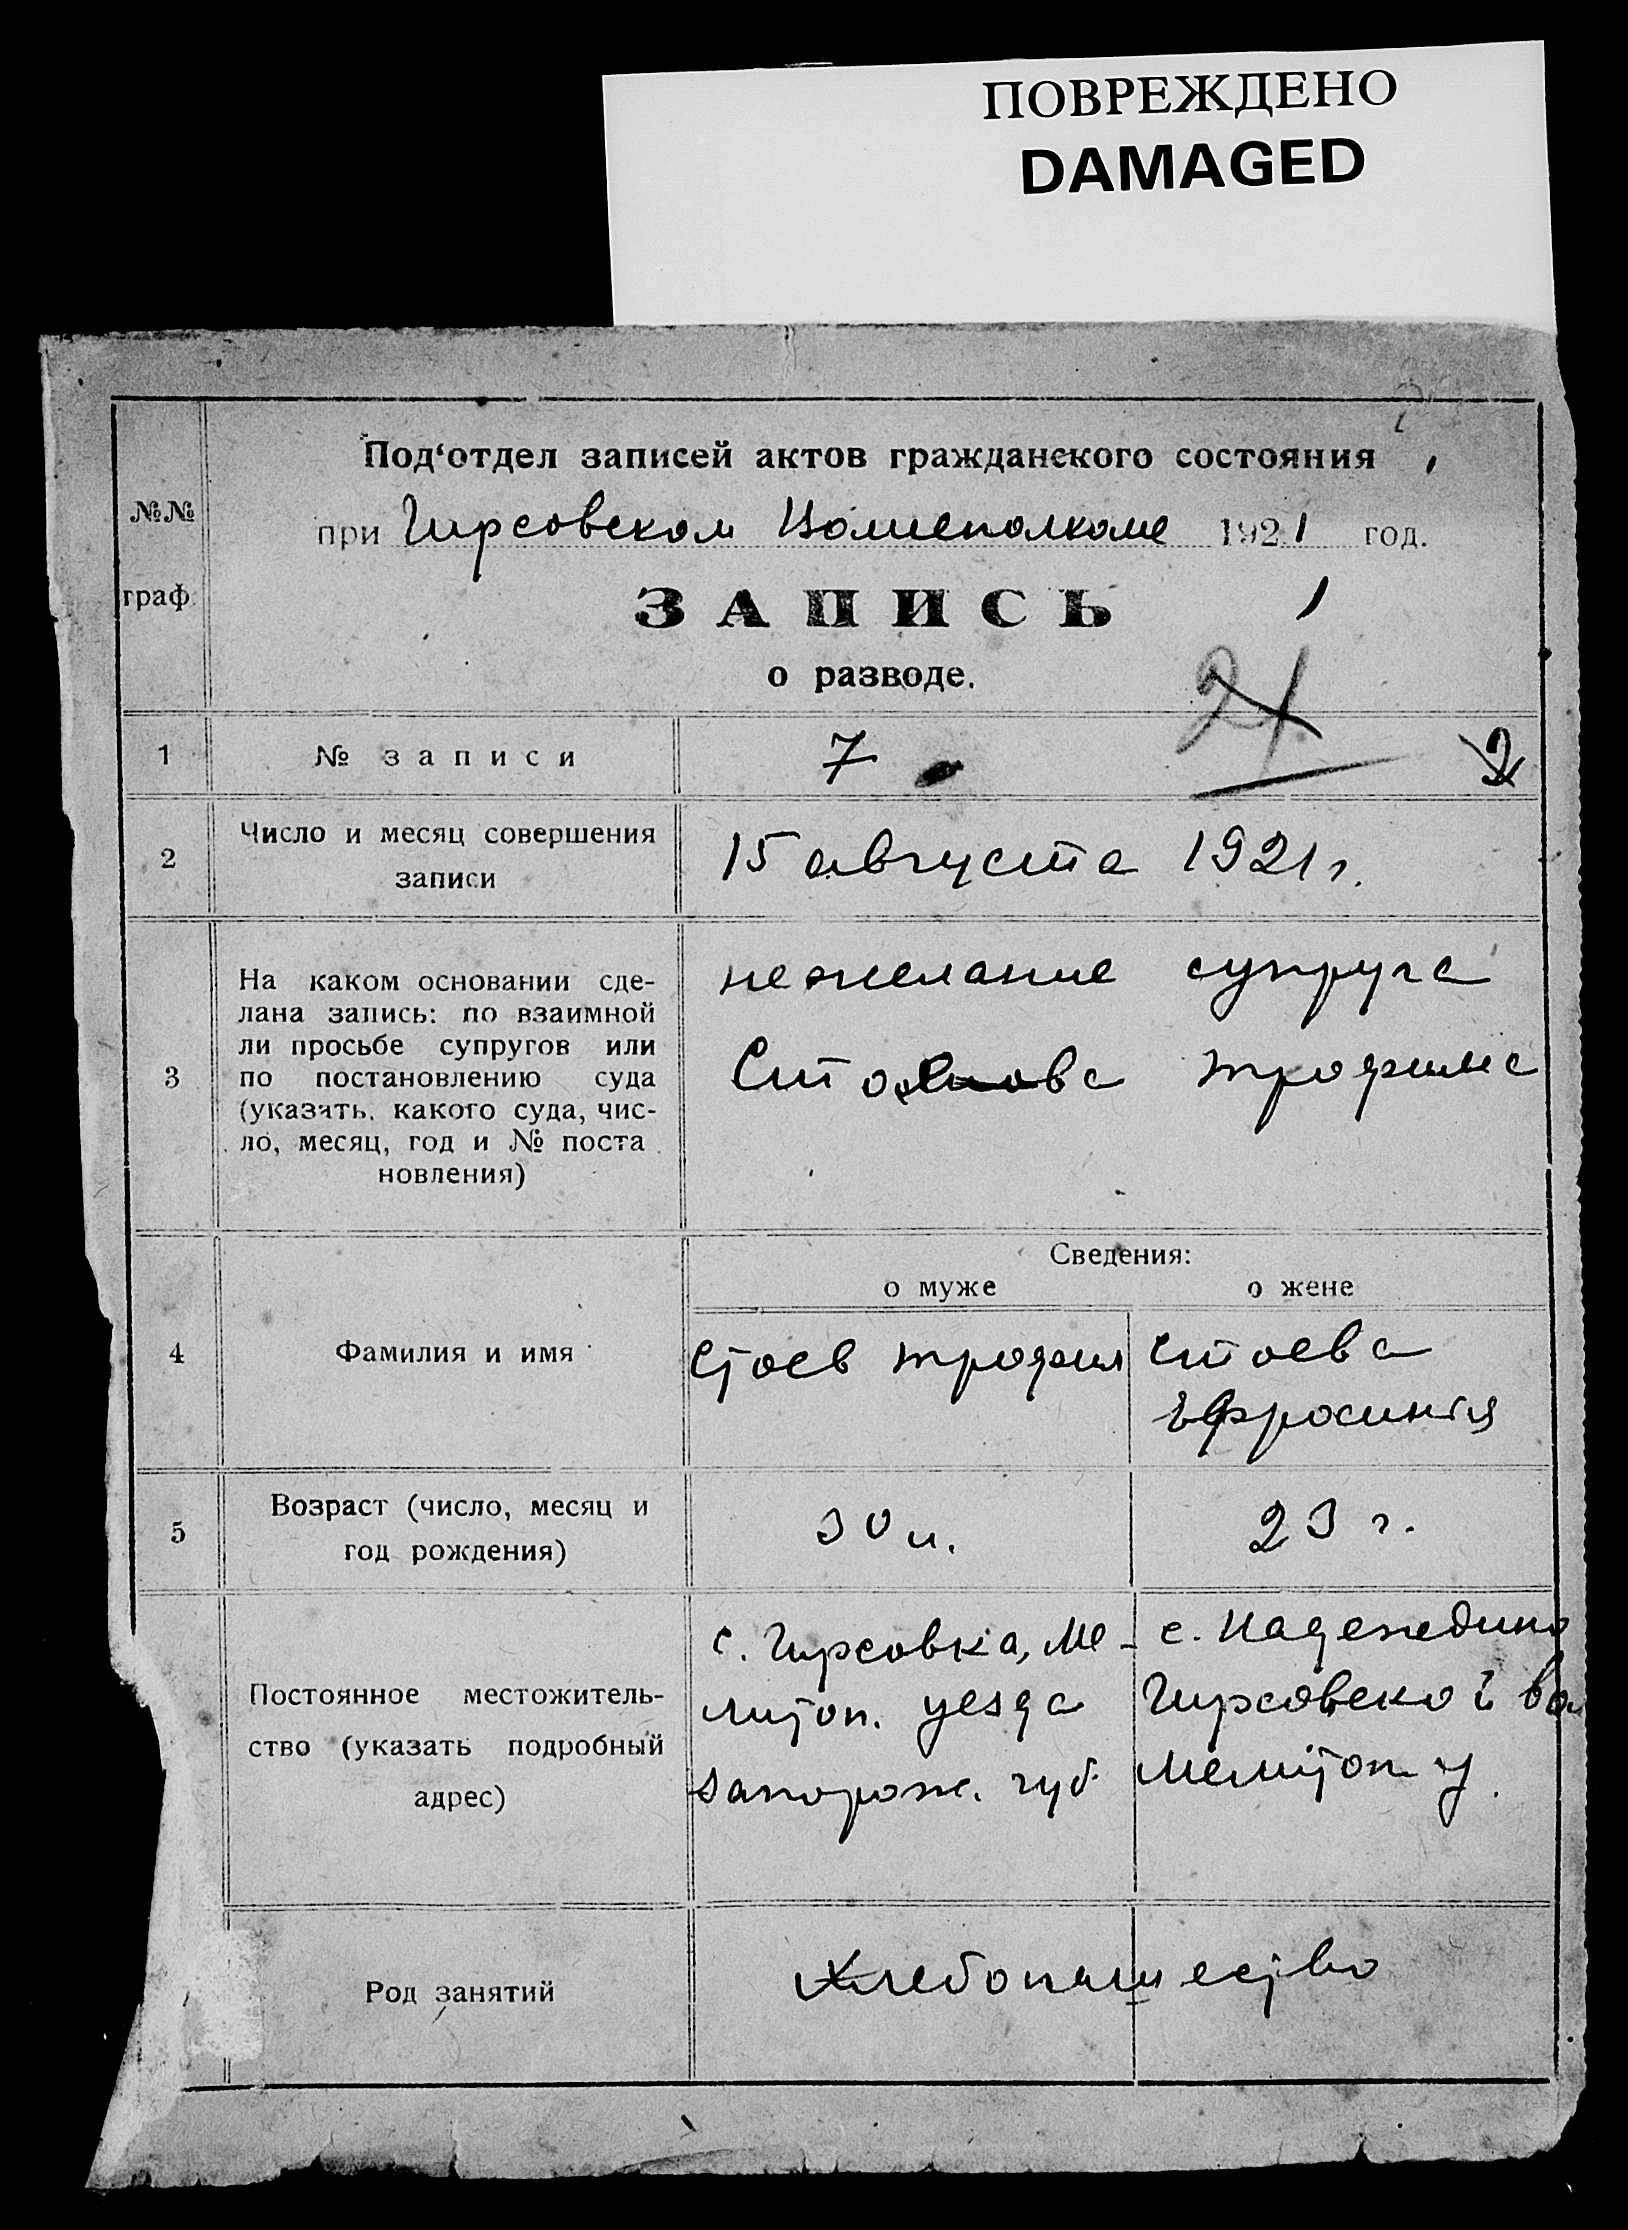 ПОВРЕЖДЕНО
DAMAGED
Под‘отдел записей актов гражданского состояния
№№
граф.
при Гирсовском Волисполкоме 1921 год.
ЗАПИСЬ
о разводе.
21
1 № записи 7 2
2 Число и месяц совершения
записи
15 августа 1921 г.
3 На каком основании сде-
лана запись: по взаимной
ли просьбе супругов или
по постановлению суда
(указать, какого суда, чис-
ло, месяц, год и № поста
новления)
нежелание супруга
Трофима
Сведения:
о муже о жене
4 Фамилия и имя
Стоев Трофим
Стоева
Ефросиния
5 Возраст (число, месяц и
год рождения)
30 л. 23 г.
Постоянное местожитель-
ство (указать подробный
адрес)
с. Гирсовка, Ме-
литоп. уезда
Запорож. губ.
с. Надеждино
Гирсовской вол
Мелитоп у.
Род занятий
Хлебопашество